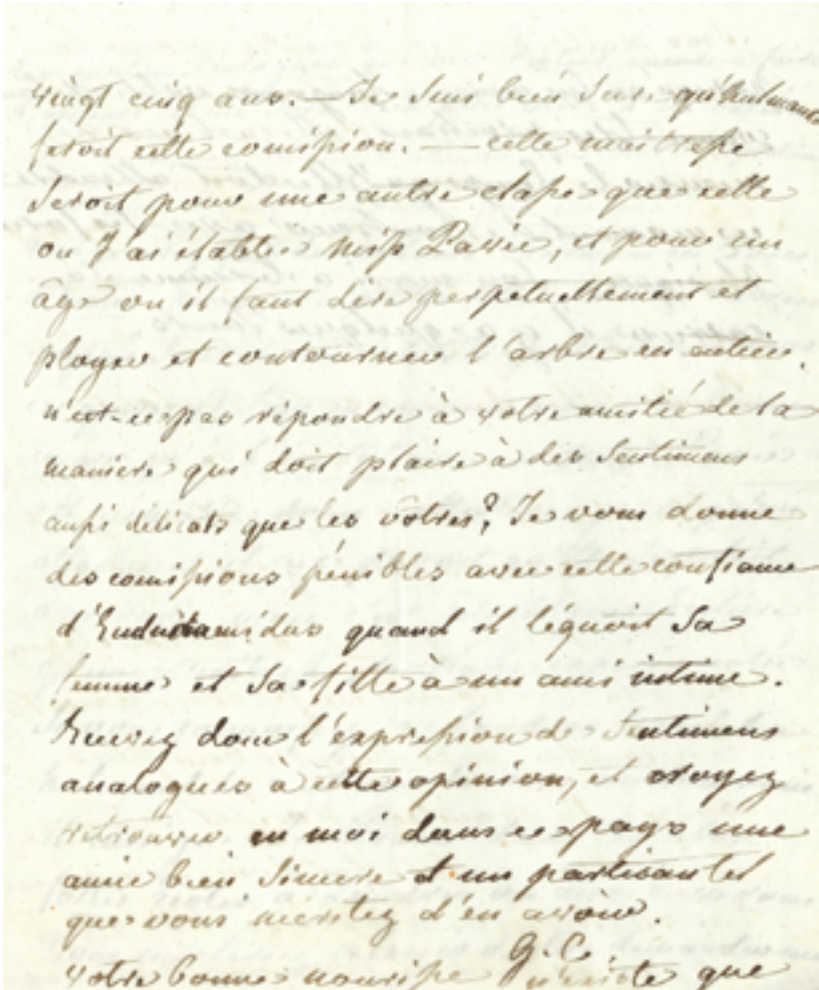 vingt cinq ans. — Je suis bien sure
feroit cette comission. — cette maitresse
seroit pour une autre classe que celle
ou J'ai établie Miss, et pour un
âge ou il faut dire perpetuellement et
ployer et contourner l'arbre en entier.
n'est-ce pas répondre à votre amitié de la
maniere qui doit plaire à des Sentimens
aussi délicats que les vôtres? Je vous donne
des comissions pénibles avec cette confiance
d'Eudamidas quand il léguoit Sa
femme et Sa fille à un ami intime.
Recevez donc l'expression de Sentimens
analogues à cette opinion, et croyez
retrouver en moi dans ce pays une
amie bien Sincere et un partisan tel
que vous meritez d'en avoir.
G. C.
votre bonne nourisse n'existe que